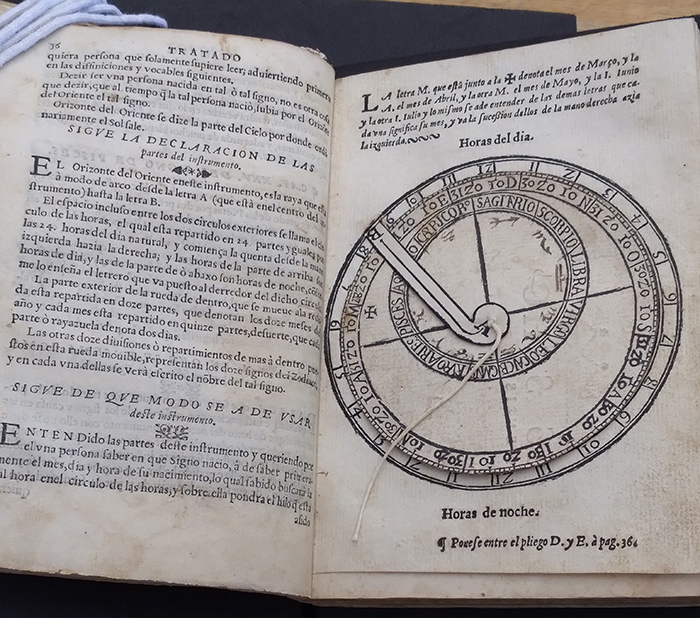 36
TRATADO
quiera persona que solamente supiere leer, aduirtiendo primero
en las diffiniciones y vocables siguientes.
Dezir ser vna persona nacida en tal ò tal signo, no es otra cosa
que dezir, que al tiempo q̃ la tal persona nacio, subia por el Orizõte
del Oriente el tal signo.
Orizonte del Oriente se dize la parte del Cielo por donde ordi
nariamente el Sol sale.
SIGVE LA DECLARACION DE LAS
partes del instrumento.
EL Orizonte del Oriente eneste instrumento, es la raya que està
à modo de arco desde la letra A (que està enel centro del
strumento) hasta la letra B.
El espacio incluso entre los dos circulos exteriores se llama el cir
culo de las horas, el qual esta repartido en 24. partes yguales, por
las 24. horas del dia natural, y comença la quenta desde la mano
izquierda hazia la derecha; y las horas de la parte de arriba son
horas de dia, y las de la parte de ò abaxo son horas de noche, como
me lo enseña el letrero que va puesto al derredor del dicho circulo.
La parte exterior de la rueda de dentro, que se mueue al a
da esta repartida en doze partes, que denotan los doze meses del
año y cada mes esta repartido en quinze partes, desuerte, que cada
parte ò rayazuela denota dos dias.
Las otras doze diuisiones ò repartimientos de mas à dentro pue
stos en esta rueda mouible, representan los doze signos del Zodiaco,
y en cada vna dellas se verà escrito el nõbre del tal signo.
SIGVE DE QVE MODO SE A DE VSAR
deste instrumento.
ENTENDido las partes deste instrumento y queriendo por
el vna persona saber en que Signo nacio, à de saber primera
mente el mes, dia y hora de su nacimiento, lo qual sabido buscarà
al hora enel circulo de las horas, y sobre ella pondra el hilo q̃ està
asido
LA letra M. que està junto a la ✠ denota el mes de Março, y la
A. el mes de Abril, y la otra M. el mes de Mayo, y la I. Iunio
y la otra I. Iulio y lo mismo se a de entender de las demas letras que ca-
da vna significa su mes, y va la sucession dellos de la mano derecha azia
la izquierda.
Horas del dia.
B
CAPRICOR
SAGITRIO
SCORPIO
LIBRA
VIRGO
LEO
CACE
GMNI
TAVRO
ARIE
PISCES
Horas de noche.
¶ Ponese entre el pliego D. y E. à pag. 36.